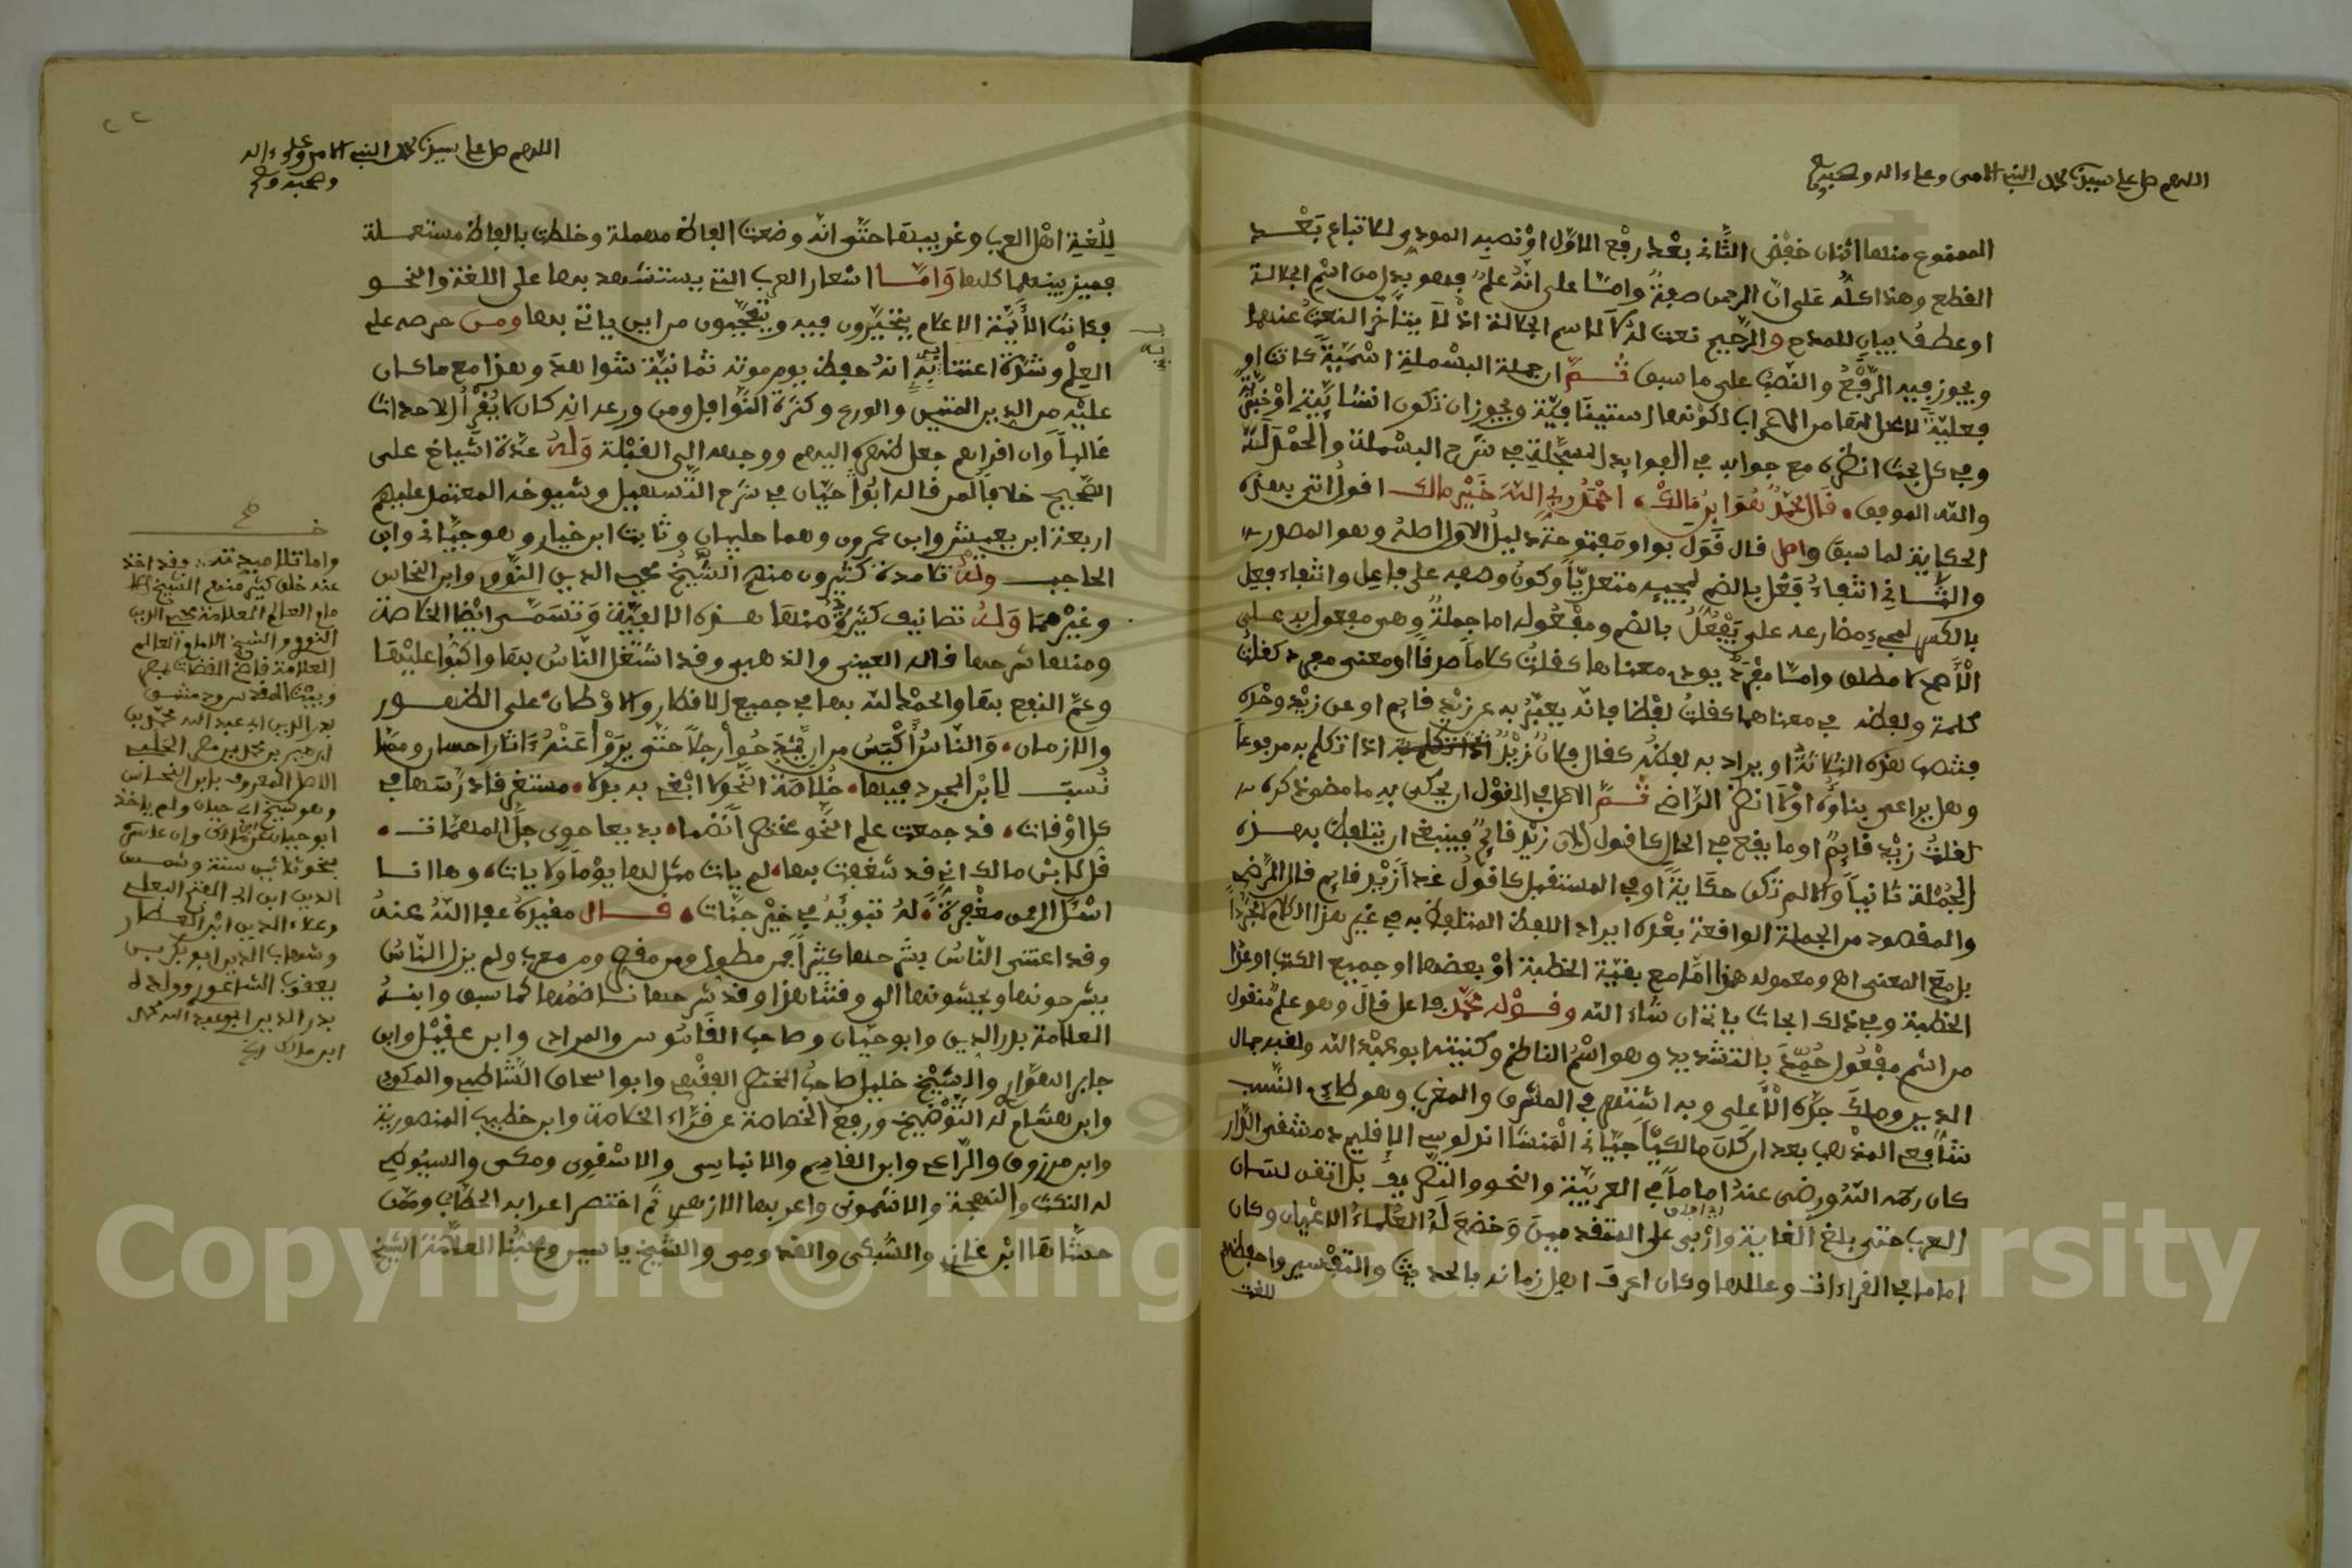 اللهم صل على سيدنا محمد النبي الامي وعلى ءاله وصحبه
الممنوع منها اثنان خفض الثاني بعد رفع الاول او نصبه المودى للاتباع بعد
القطع وهذا كله على ان الرحمن صفة واما على انه علم فهو بدل من اسم الجلالة
او عطف بيان للمدح والرحيم نعت له لا لاسم الجلالة اذ لا يتأخر النعت عنهما
ويجوز فيه الرفع والنصب على ما سبق ثم ان جملة البسملة اسمية كانت او
فعلية لا محل لها من الاعراب لكونها استينافية ويجوز ان تكون انشائية او خبرية
وفي كل بحث انظره مع جوابه في الفوايد المسجلة في شرح البسملة والحمدلة
والله الموفق قال محمد هو ابن مالك احمد ربي الله خير مالك اقول اتى بهذه
الحكاية لما سبق واصل قال قول بواو مفتوحة دليل الاول اصله وهو المصدر
والثاني انتفاء فعل بالضم لمجيئه متعديا وكون وصفه على فاعل وانتفاء فعل
بالكسر لمجيء مضارعه على يفعل بالضم ومفعوله اما جملة وهي مفعول به على
الأصح لا مطلق واما مفرد يودي معناها كقلت كلاما صدقا او معنى مفرد كقلت
كلمة ولفظه في معناهما كقلت لفظا فانه يعبر به عن زيد قايم او عن زيد وحده
فتصب هذه الثلاثة او يراد به لفظه كقال فلان زيد اذا تكلم به مرفوعا
وهل يراعى بناؤه اولا انظر الراضي ثم الاصل في القول ان يحكى به ما مضى ذكره
كقلت زيد قايم او ما يقع في الحال كاقول الان زيد قايم فينبغي ان يتلفظ بهذه
الجملة ثانيا والا لم تكن حكاية او في المستقبل كاقول غدا زيد قايم قال الرضي
والمقصود من الجملة الواقعة بعده ايراد اللفظ المتلفظ به في غير هذا الكلام مجردا
بل مع المعنى اه ومعموله هنا اما مع بقية الخطبة او بعضها او جميع الكتب او عدا
الخطبة وفي ذلك ابحاث ياتي ان شاء الله وقوله محمد فاعل قال وهو علم منقول
من اسم مفعول حمد بالتشديد وهو اسم الناظم وكنيته ابو عبد الله ولقبه جمال
الدين ومالك جده الأعلى وبه اشتهر في المشرق والمغرب وهو طاءي النسب
شافعي المذهب بعد ان كان مالكيا جياني المنشا اندلوسي الاقليم دمشقي الدار
كان رحمه الله ورضي عنه اماما في العربية والنحو والتصريف بل اتقن لسان
العرب حتى بلغ الغاية واربى على المتقدمين وخضع له العلماء الاعيان وكان
اماما في القراءات وعللها وكان اعرف اهل زمانه بالحديث والتفسير واحفظهم
للغة
اللهم صل على سيدنا محمد النبي الامي وعلى ءاله
وصحبه وسلم
للغة اهل العرب وغريبها حتى انه وضعت الفاظ مهملة وخلطت بالفاظ مستعملة
فميز بينهما كلها واما اشعار العرب التي يستشهد بها على اللغة والنحو
فكانت الأيمة الاعلام يتحيرون فيه ويتعجبون من اين ياتي بها ومن حرصه على
العلم وشدة اعتنائه به انه حفظ يوم موته ثمانية شواهد وهذا مع ما كان
عليه من الدين المتين والورع وكثرة النوافل ومن ورعه انه كان لا يقرأ الاحداث
غالبا وان اقراهم جعل ظهره اليهم ووجهه الى القبلة وله عدة اشياخ على
الصحيح خلافا لمن قاله ابو حيان في شرح التسهيل وشيوخه المعتمد عليهم
اربعة ابن يعيش وابن عمرون وهما حلبيان وثابت ابن خيار وهو جياني وابن
الحاجب وله تلامدة كثيرون منهم الشيخ محيي الدين النووي وابن النحاس
وغيرهما وله تصانيف كثيرة منها هذه الالفية وتسمى ايضا الخلاصة
ومنها شرحها قاله العيني والذهبي وقد اشتغل الناس بها واكبوا عليها
وعم النفع بها والحمد لله بها في جميع الاقطار والاوطان على الظهور
والازمان والناس أكيس من ان يمدحوا رجلا حتى يروا عنده ءاثار احسان ومما
نسب لابن المجرد فيها خلاصة النحو لا ابغي به بدلا مستغرقا درسها في
كل اوقات قد جمعت علم النحو مختصرا نظما بديعا حوى جل المهمات
قل لابن مالك اني قد شغفت بها لم يات مثل لها يوما ولا يات وها انا
اسئل الرحمن مغفرة له تبوئه في خير جنات قال مقيده عفا الله عنه
وقد اعتنى الناس بشرحها كثيرا فمن مطول ومن مقصر ومن معرب ولم يزل الناس
يشرحونها ويحشونها الى وقتنا هذا وقد شرحها ناضمها كما سبق وابنه
العلامة بدر الدين وابو حيان وصاحب القاموس والمرادي وابن عقيل وابن
جابر الهواري والشيخ خليل صاحب المختصر الفقهي وابو اسحاق الشاطبي والمكودي
وابن هشام له التوضيح ورفع الخصاصة عن قراء الخلاصة وابن خطيب المنصورية
وابن مرزوق والراعي وابن القاسم والانباسي والاشقون ومكي والسيوطي
له النكت والبهجة والاشموني واعربها الازهري ثم اختصر اعرابه الحطاب وممن
حشاها ابن غازي والشبكي والقدومي والشيخ ياسين وشيخنا العلامة الشيخ
واما تلاميدته فقد اخذ
عنه خلق كثير منهم الشيخ الا
مام العالم العلامة محيي الدين
النووي والشيخ الامام العالم
العلامة قاضي القضات بمصر
وبيت المقدس ودمشق
بدر الدين ابي عبد الله محمد بن
الاصل المعروف بابن النحاس
وهو شيخ ابي حيان ولم ياخذ
بنحو ثمانين سنة وشمس
الدين ابن ابي الفتح البعلي
وعلاء الدين ابن العطار
وشهاب الدين ابو بكر بن
يعقوب الشاغوري وولده
بدر الدين ابو عبد الله محمد
ابن مالك
Copyright © King Saud University